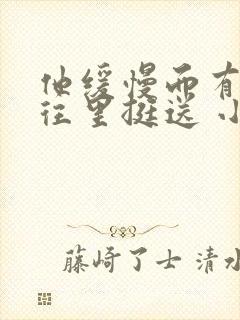 他缓慢而有
往里挺送 小
藤崎了士 清水